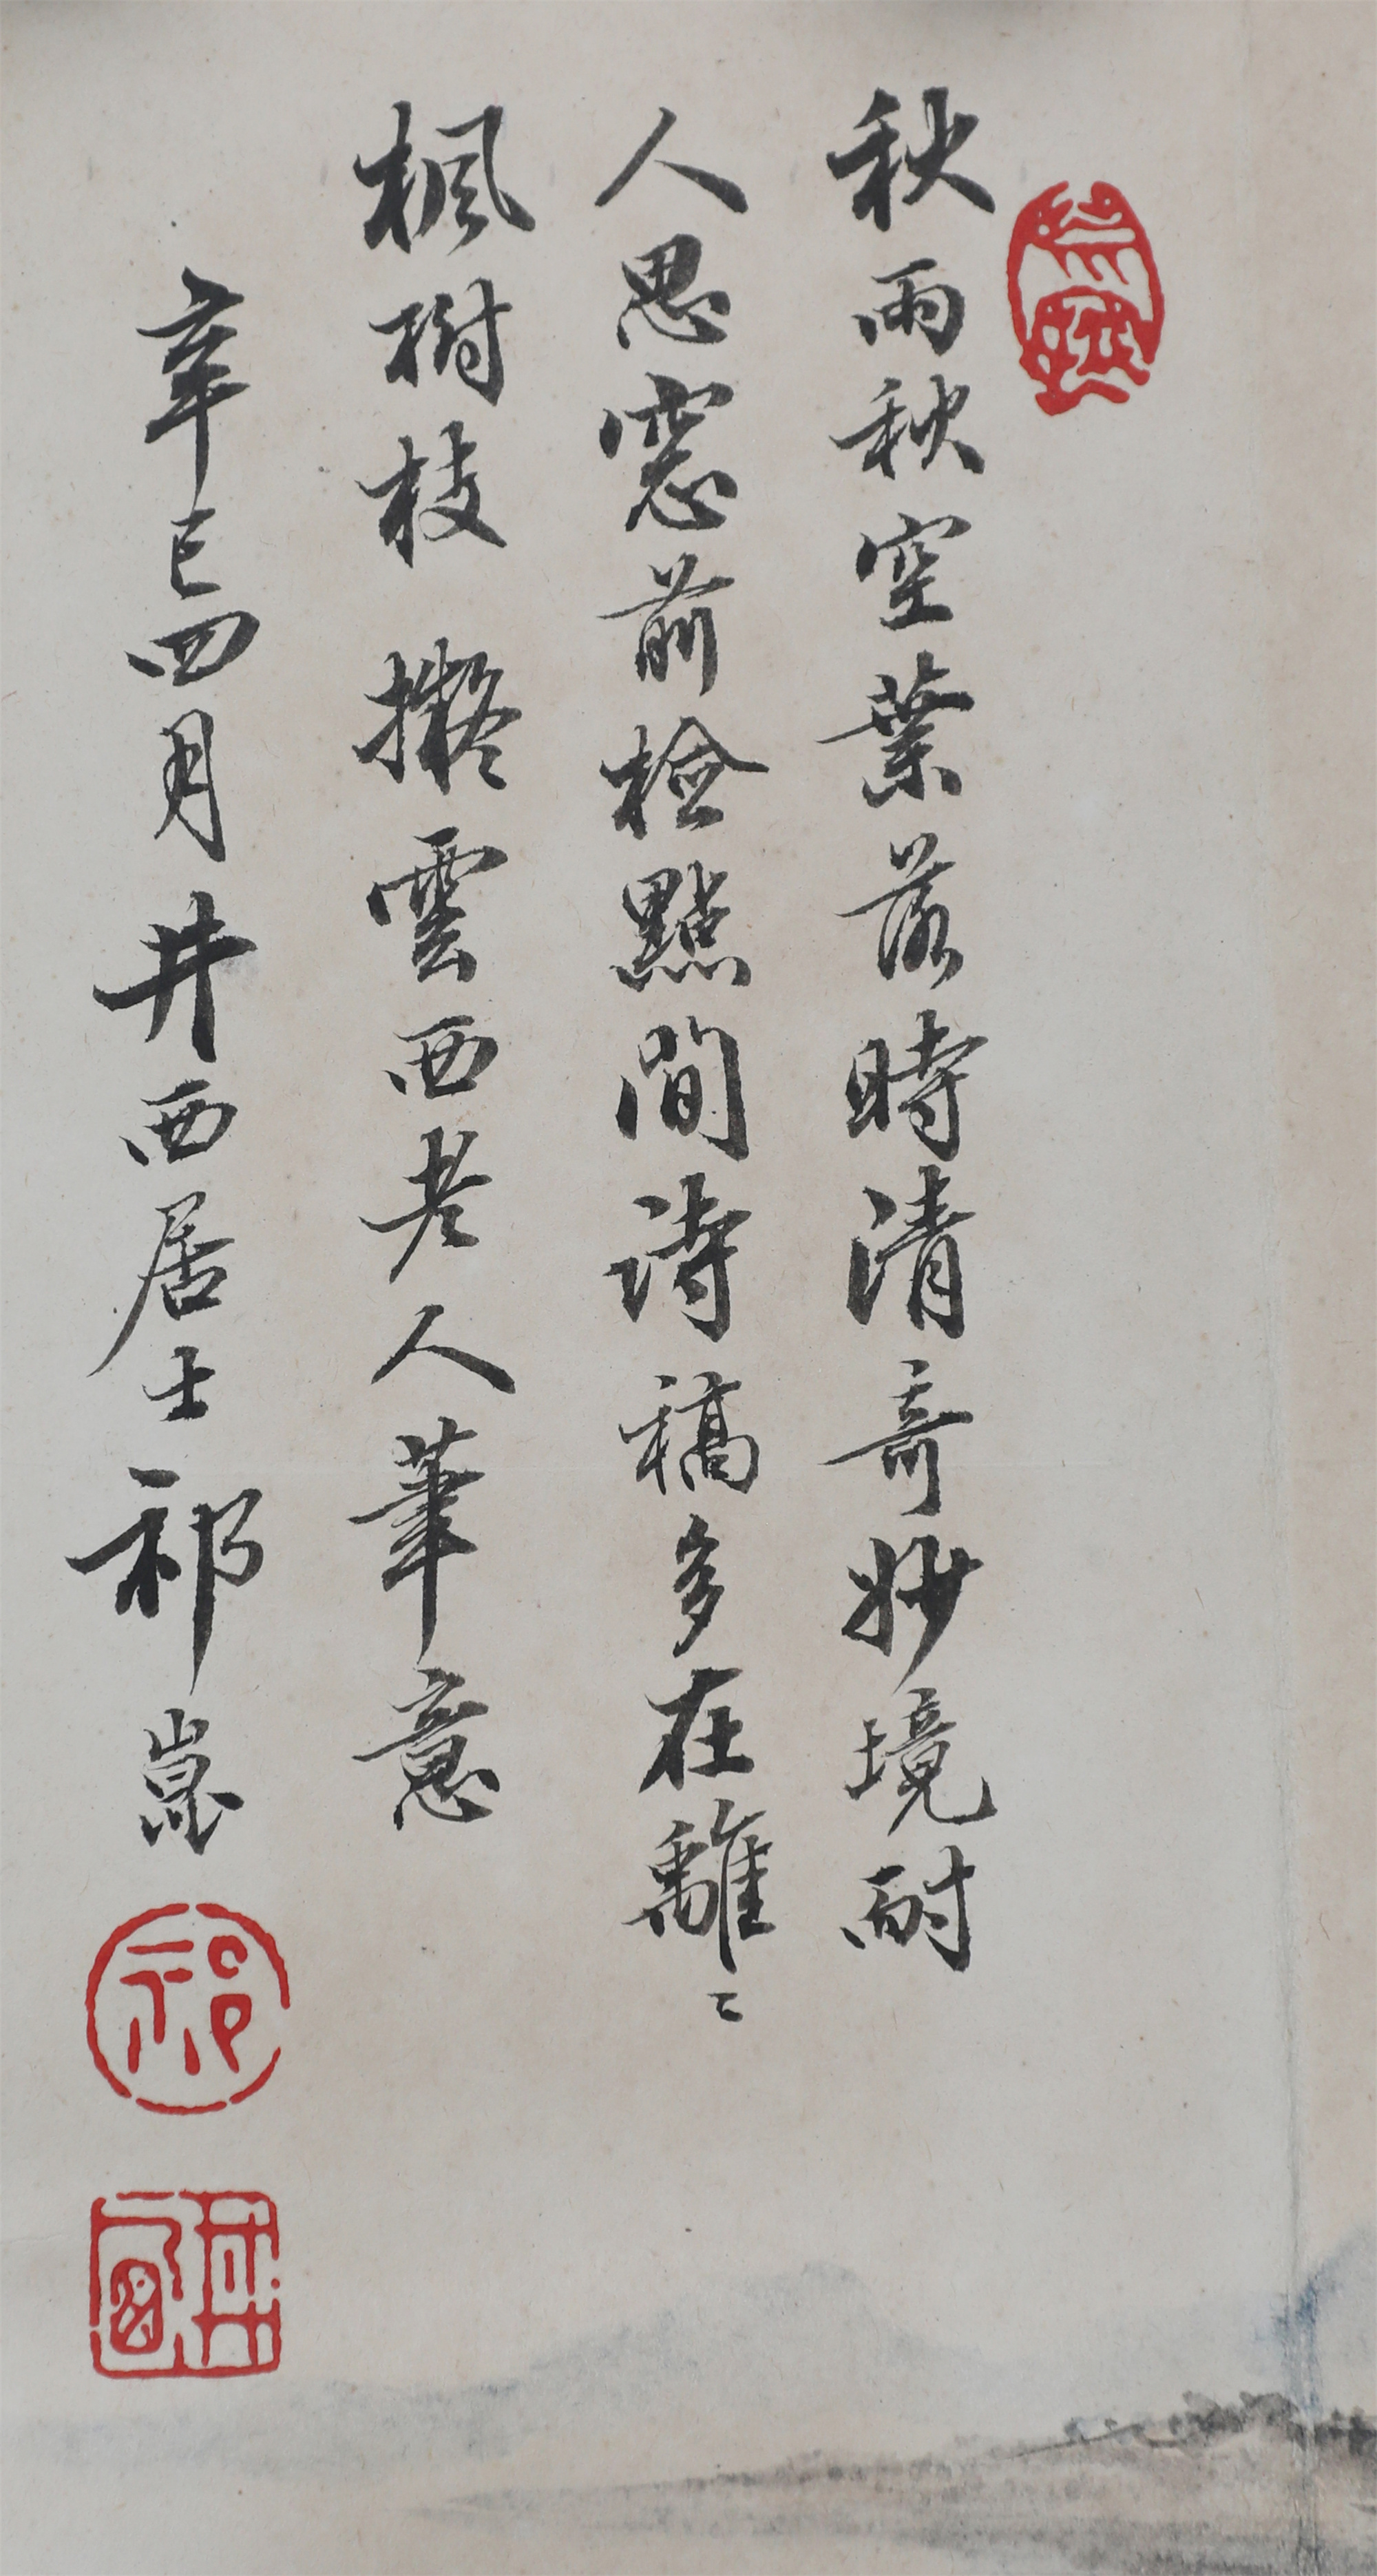 秋雨秋空葉落時清奇妙境耐
人思窓前檢點閒詩稿多在離〻
楓樹枝 擬雲西老人筆意
辛巳四月井西居士祁崑
祁
井西